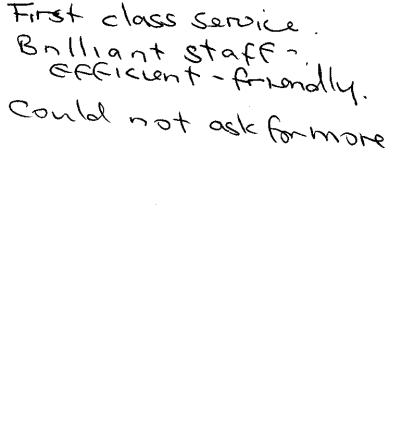 First class service.
Brilliant staff -
efficient - friendly.
Could not ask for more